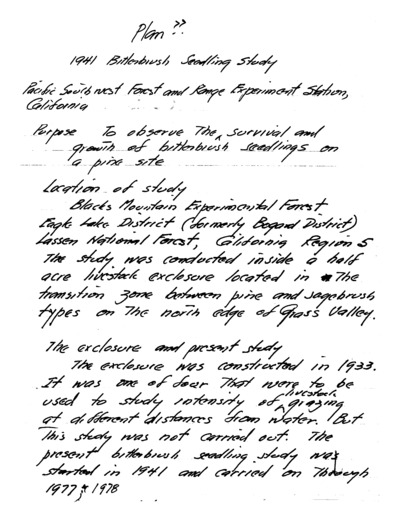 Plan??
1941 Bitterbrush Seedling Study
Pacific Southwest Forest and Range Experiment Station,
California
Purpose To observe The survival and
growth of bitterbrush seedlings on
a pine site
Location of study
Blacks Mountain Experimental Forest
Eagle Lake District (formerly Bogard District)
Lassen National Forest, California Region 5
The study was conducted inside a half
acre livestock exclosure located in The
transition zone between pine and sagebrush
types on The north edge of Grass Valley.
The exclosure and present study
The exclosure was constructed in 1933.
It was one of four That were to be
used to study intensity of livestock grazing
at different distances from water. But
This study was not carried out. The
present bitterbrush seedling study was
started in 1941 and carried on Through
1977 & 1978